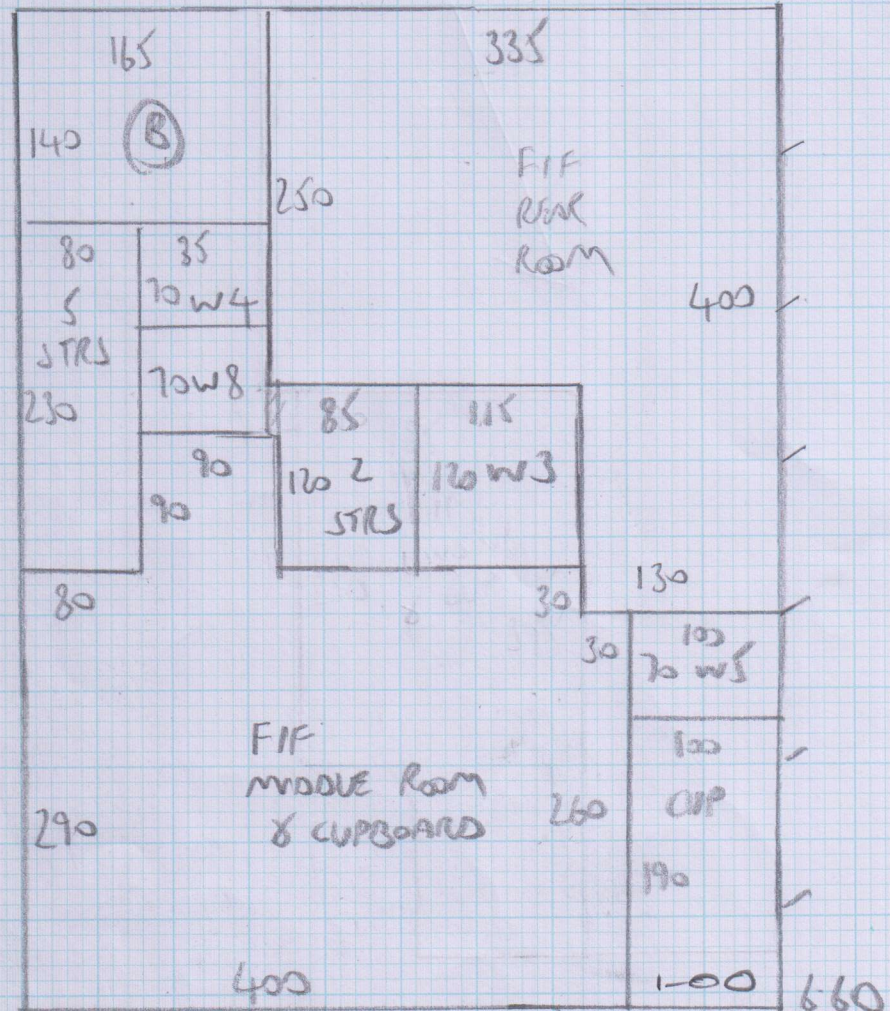 165
335
140
B
250
F/F
REAR
ROOM
80
35
70 W4
5
STRS
400
230
70 W8
85
115
120 2
STRS
120 W3
90
90
80
30
130
30
100
70 W5
F/F
MIDDLE ROOM
& CUPBOARD
290
260
100
CUP
190
400
100
660